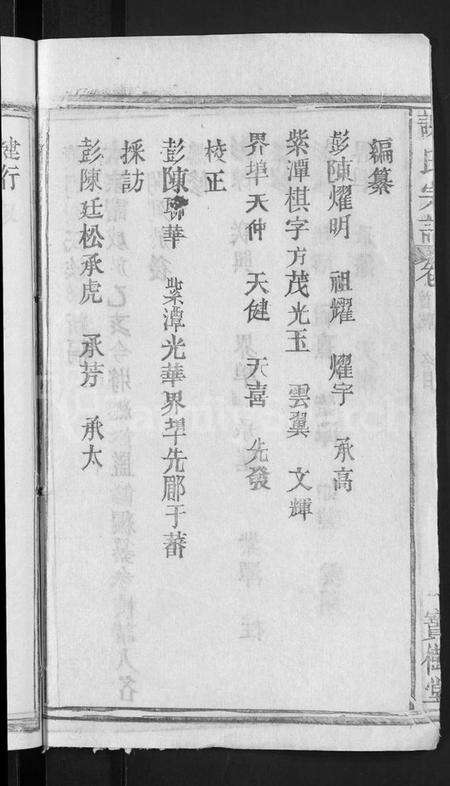 氏宗譜 卷
寶樹堂
編纂
彭陳燿明 祖燿 燿宇 承高
紫潭棋字方茂光玉 雲翼 文輝
界埠天仲 天健 天喜 先發
校正
彭陳聯華 紫潭光華界埠先郎于蕃
採訪
彭陳廷松承虎 承芳 承太
建行